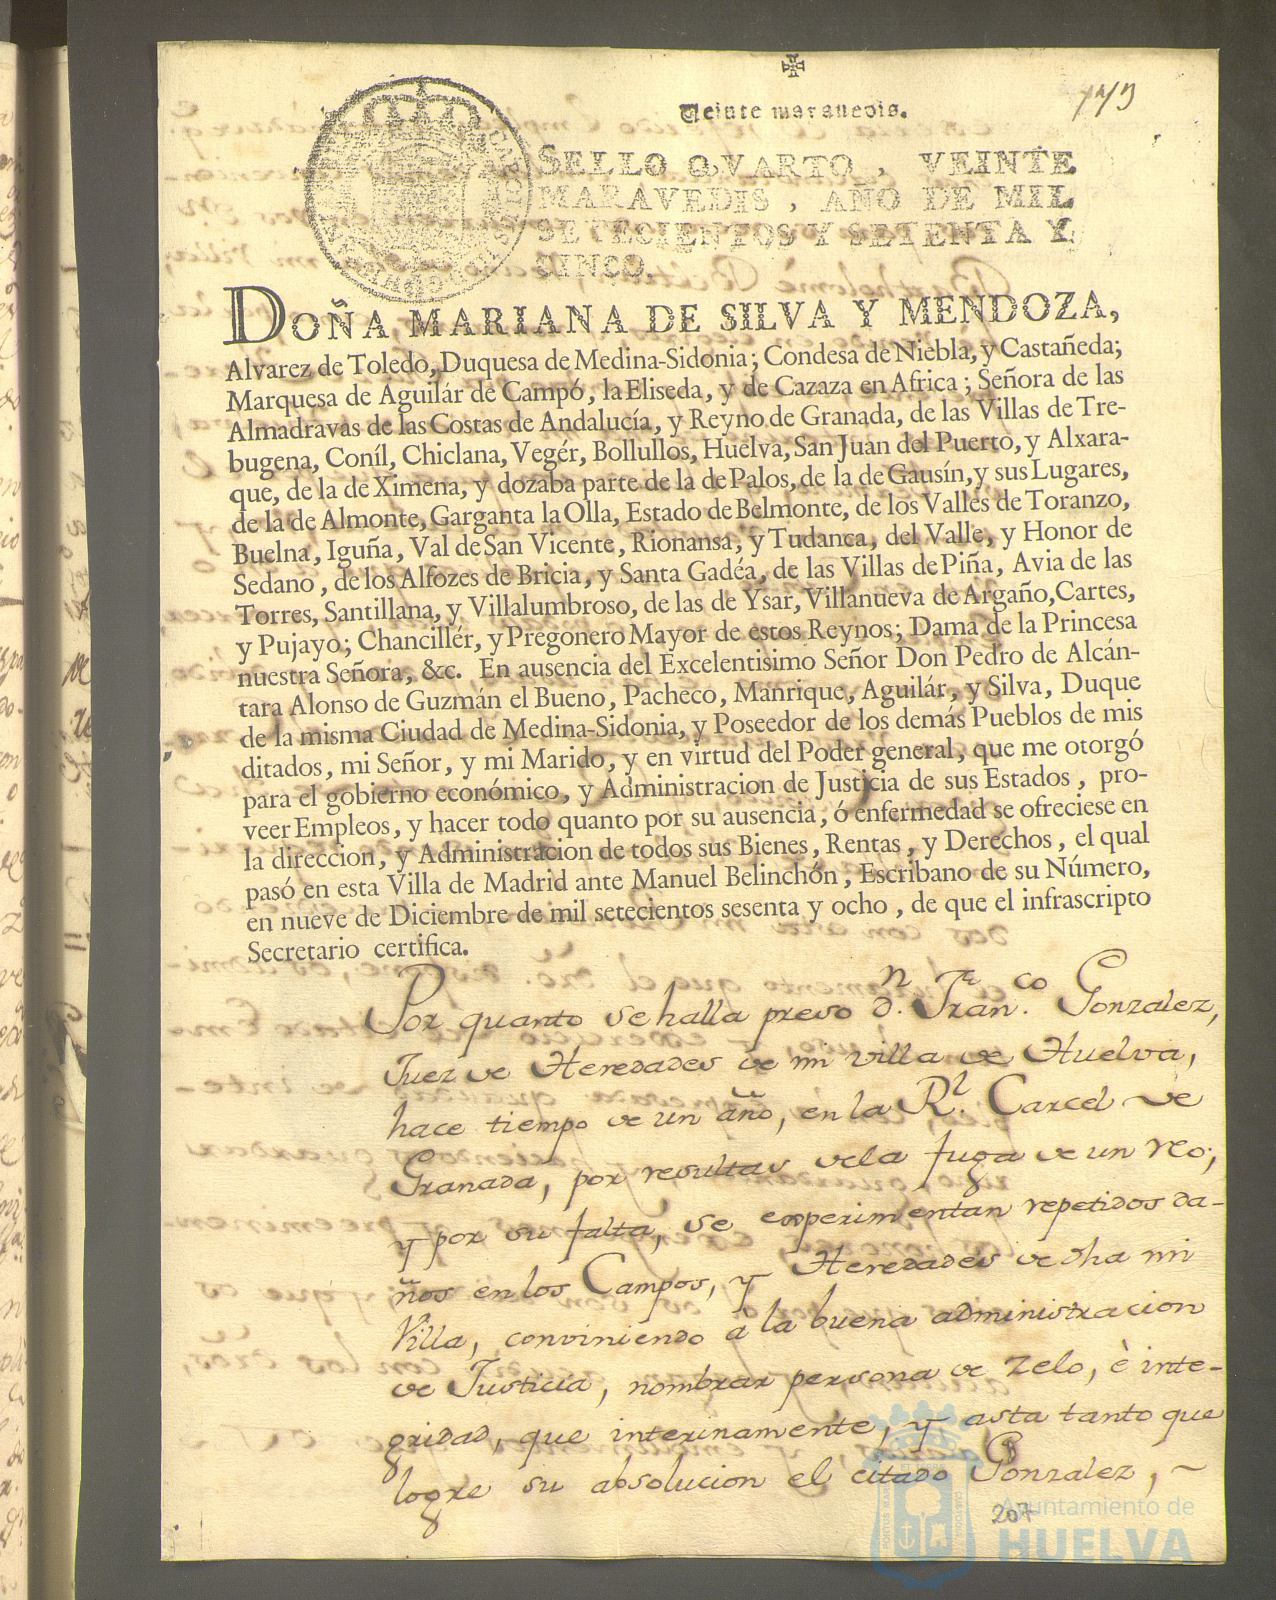 Veinte maravedis.
SELLO QVARTO, VEINTE
MARAVEDIS, AÑO DE MIL
SETECIENTOS Y SETENTA Y
CINCO.
DOÑA MARIANA DE SILVA Y MENDOZA,
Alvarez de Toledo, Duquesa de Medina-Sidonia; Condesa de Niebla, y Castañeda;
Marquesa de Aguilár de Campó, la Eliseda, y de Cazaza en Africa; Señora de las
Almadravas de las Costas de Andalucía, y Reyno de Granada, de las Villas de Tre-
bugena, Coníl, Chiclana, Vegér, Bollullos, Huelva, San Juan del Puerto, y Alxara-
que, de la de Ximena, y dozaba parte de la de Palos, de la de Gausín, y sus Lugares,
de la de Almonte, Garganta la Olla, Estado de Belmonte, de los Valles de Toranzo,
Buelna, Iguña, Val de San Vicente, Rionansa, y Tudanca, del Valle, y Honor de
Sedano, de los Alfozes de Bricia, y Santa Gadéa, de las Villas de Piña, Avia de las
Torres, Santillana, y Villalumbroso, de las de Ysar, Villanueva de Argaño, Cartes,
y Pujayo; Chancillér, y Pregonero Mayor de estos Reynos; Dama de la Princesa
nuestra Señora, &c. En ausencia del Excelentisimo Señor Don Pedro de Alcán-
tara Alonso de Guzmán el Bueno, Pacheco, Manrique, Aguilár, y Silva, Duque
de la misma Ciudad de Medina-Sidonia, y Poseedor de los demás Pueblos de mis
ditados, mi Señor, y mi Marido, y en virtud del Poder general, que me otorgó
para el gobierno económico, y Administracion de Justicia de sus Estados, pro-
veer Empleos, y hacer todo quanto por su ausencia, ó enfermedad se ofreciese en
la direccion, y Administracion de todos sus Bienes, Rentas, y Derechos, el qual
pasó en esta Villa de Madrid ante Manuel Belinchón, Escribano de su Número,
en nueve de Diciembre de mil setecientos sesenta y ocho, de que el infrascripto
Secretario certifica.
Por quanto se halla preso dn. Franco. Gonzalez,
Juez de Heredades de mi villa de Huelva,
hace tiempo de un año, en la Rl. Carcel de
Granada, por resultas dela fuga de un reo;
y por su falta, se experimentan repetidos da-
ños en los Campos, y Heredades de dha mi
Villa, conviniendo à la buena administracion
de Justicia, nombrar persona de zelo, è inte-
gridad, que interinamente, y asta tanto que
logre su absolucion el citado Gonzalez,
207
Ayuntamiento de
HUELVA